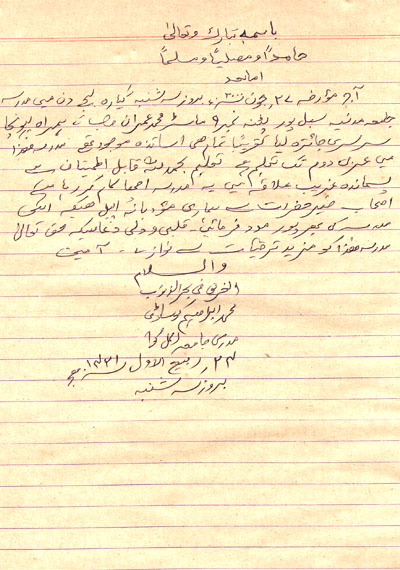 باسمہ تبارک وتعالیٰ
حامداً و مصلیاً و مسلماً
اما بعد
آج مؤرخہ ۲۷ جون ۲۰۰۰ء بروز سہ شنبہ گیارہ بجے دن میں مدرسہ
جامعہ مدنیہ سبل پور پٹنہ نمبر ۹ ماسٹر محمد عمران صاحب کے ہمراہ پہونچا
سرسری جائزہ لیا تقریباً تمام ہی اساتذہ موجود تھے مدرسہ ھٰذا
میں عربی دوم تک تعلیم ہے تعلیم بحمد للہ قابل اطمینان ہے
پسماندہ غریب علاقہ میں یہ مدرسہ اچھا کام کر رہا ہے
اصحاب خیر حضرات سے ہماری مؤدبانہ اپیل ھیکہ اس
مدرسہ کی بھرپور مدد فرمائیں۔ قلبی و دلی دعا ہیکہ حق تعالیٰ
مدرسہ ھٰذا کو مزید ترقیات سے نوازے۔ آمین
والسلام
الغریق فی بحر الذنوب
محمد ابراہیم
مدرس جامعہ
۲۴ ربیع الاول ۱۴۲۱ھ
بروز سہ شنبہ